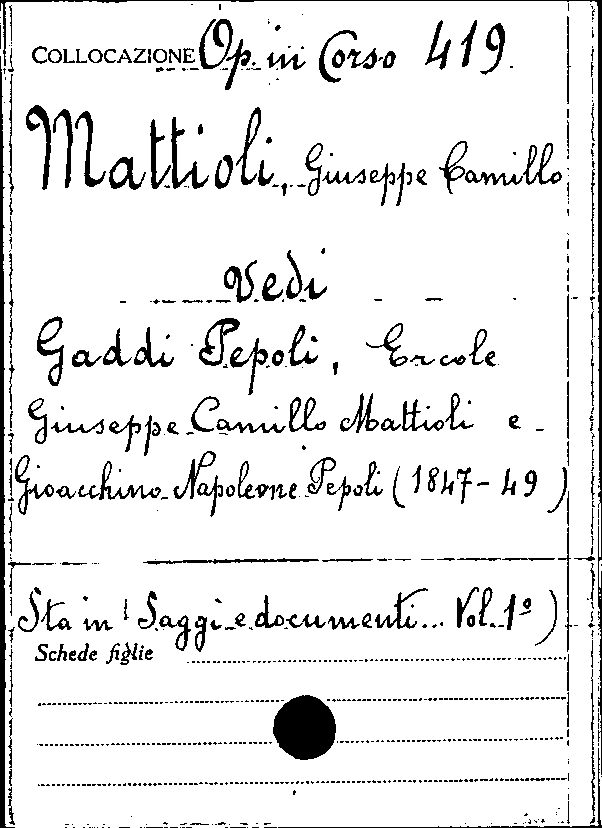 COLLOCAZIONE Op. in Corso 419
Mattioli, Giuseppe Camillo
Vedi
Gaddi Pepoli, Ercole
Giuseppe Camillo Mattioli e
Gioacchino Napoleone Pepoli (1847-49)
Sta in: Saggi e documenti... Vol. 1º)
Schede figlie